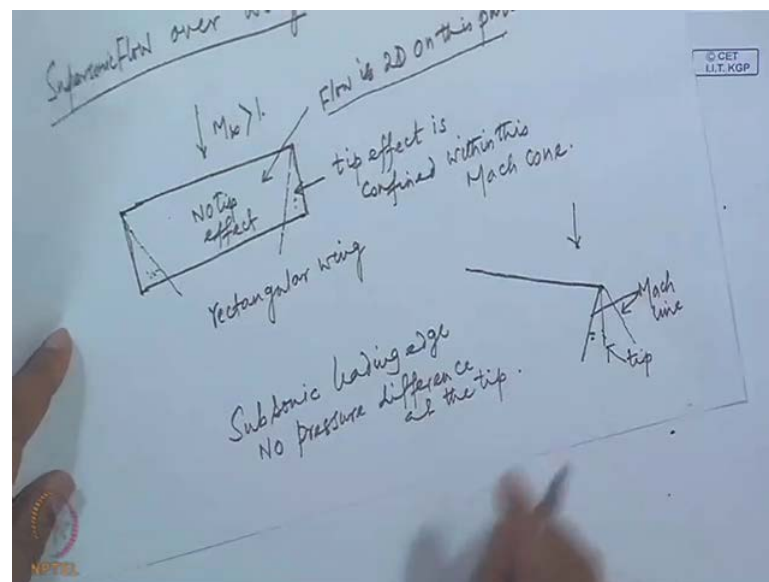 Supersonic Flow over
© CET
I.I.T. KGP
M∞ > 1.
Flow is 2D on this
No tip
effect
tip effect is
confined within this
Mach cone.
rectangular wing
Mach
line
tip
Subsonic leading edge
No pressure difference
at the tip.
NPTEL